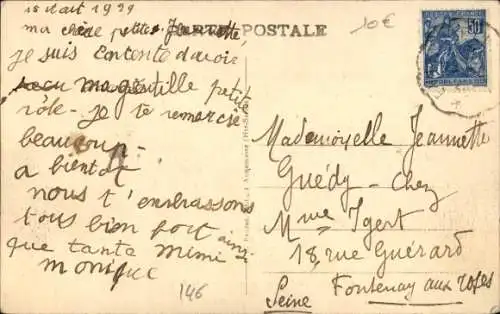 CARTE POSTALE
10€
ma chère petite Jeannette
je suis contente d'avoir
reçu ma gentille petite
je te remercie
beaucoup
a bientot
nous t'embrassons
tous bien fort ainsi
que tante mimi
monique
146
50
Mademoiselle Jeannette
Guédy - Chez
Mme Igert
18, rue Guérard
Fontenay aux roses
Seine